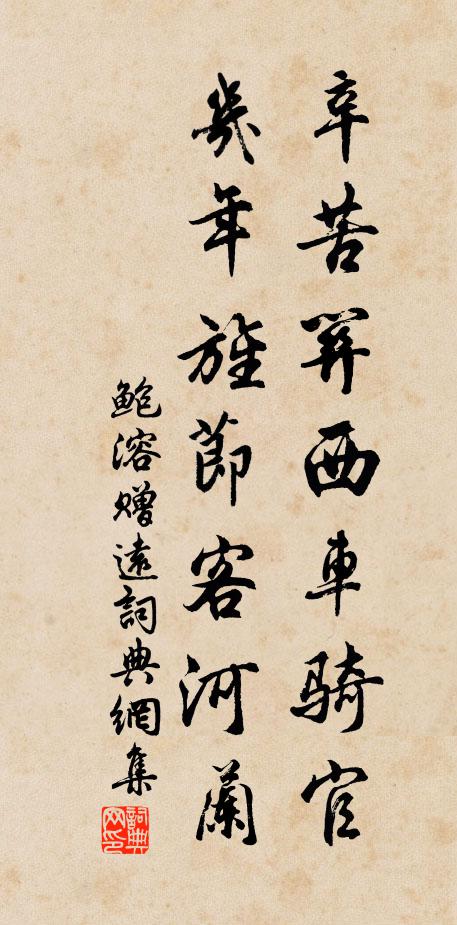 辛苦關西車騎官
幾年旌節客河蘭
鮑溶贈遠詞典網集
詞典
网印